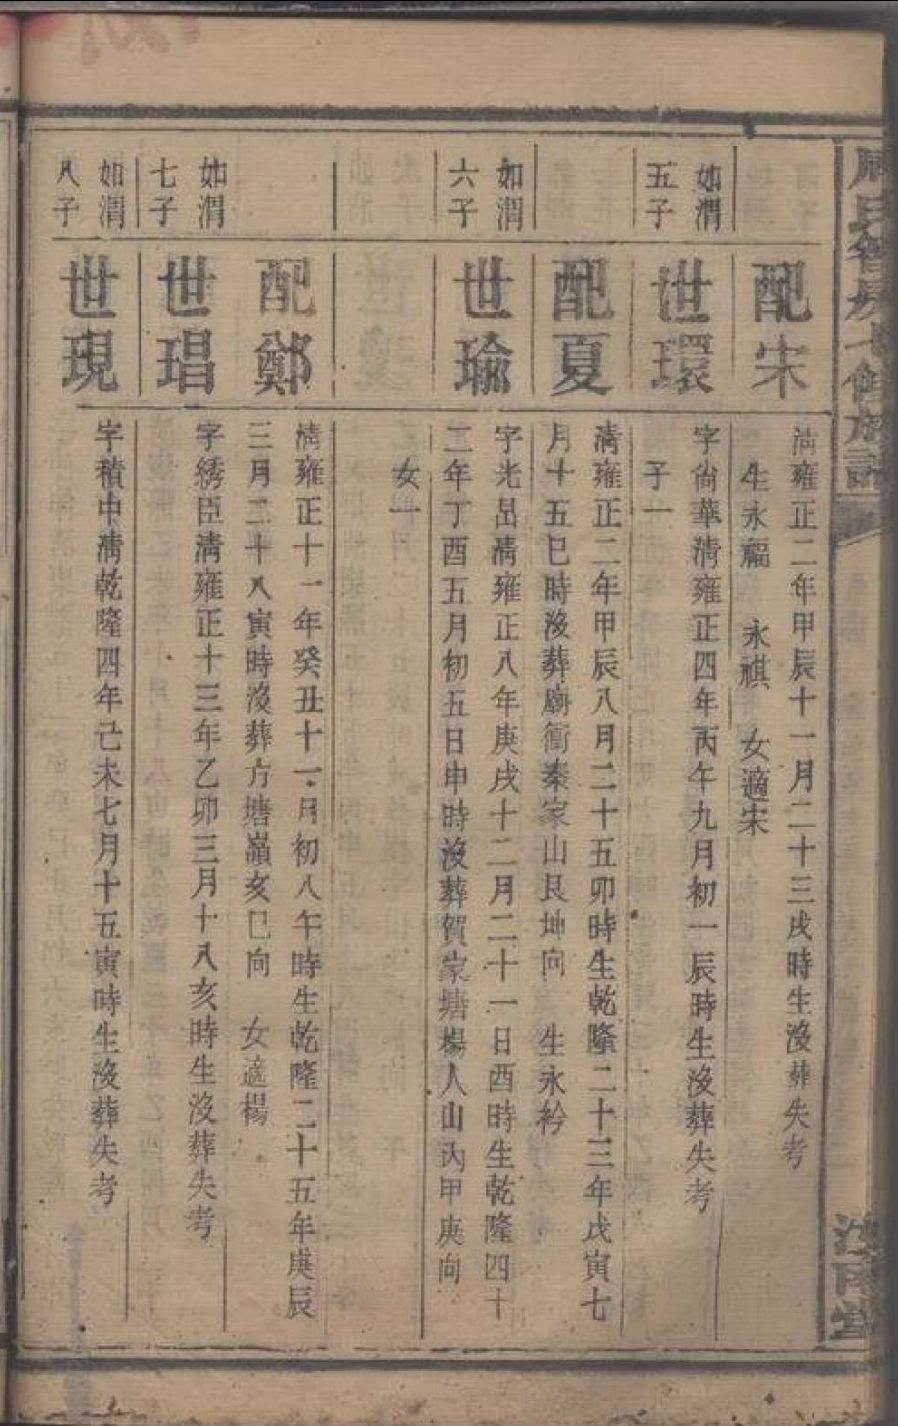 周氏智房七修族譜
汝南堂
配宋
清雍正二年甲辰十一月二十三戌時生沒葬失考
生永福　永祺　女適宋
如渭
五子
世環
字尙華清雍正四年丙午九月初一辰時生沒葬失考
子一
配夏
清雍正二年甲辰八月二十五卯時生乾隆二十三年戊寅七
月十五巳時沒葬廟衝秦家山艮坤向　生永衿
如渭
六子
世瑜
字光昌清雍正八年庚戌十二月二十一日酉時生乾隆四十
二年丁酉五月初五日申時沒葬賀家塘楊人山內甲庚向
女一
配鄭
清雍正十一年癸丑十一月初八午時生乾隆二十五年庚辰
三月二十八寅時沒葬方塘巔亥巳向　女適楊
如渭
七子
世琩
字綉臣清雍正十三年乙卯三月十八亥時生沒葬失考
如渭
八子
世現
字積中清乾隆四年己未七月十五寅時生沒葬失考